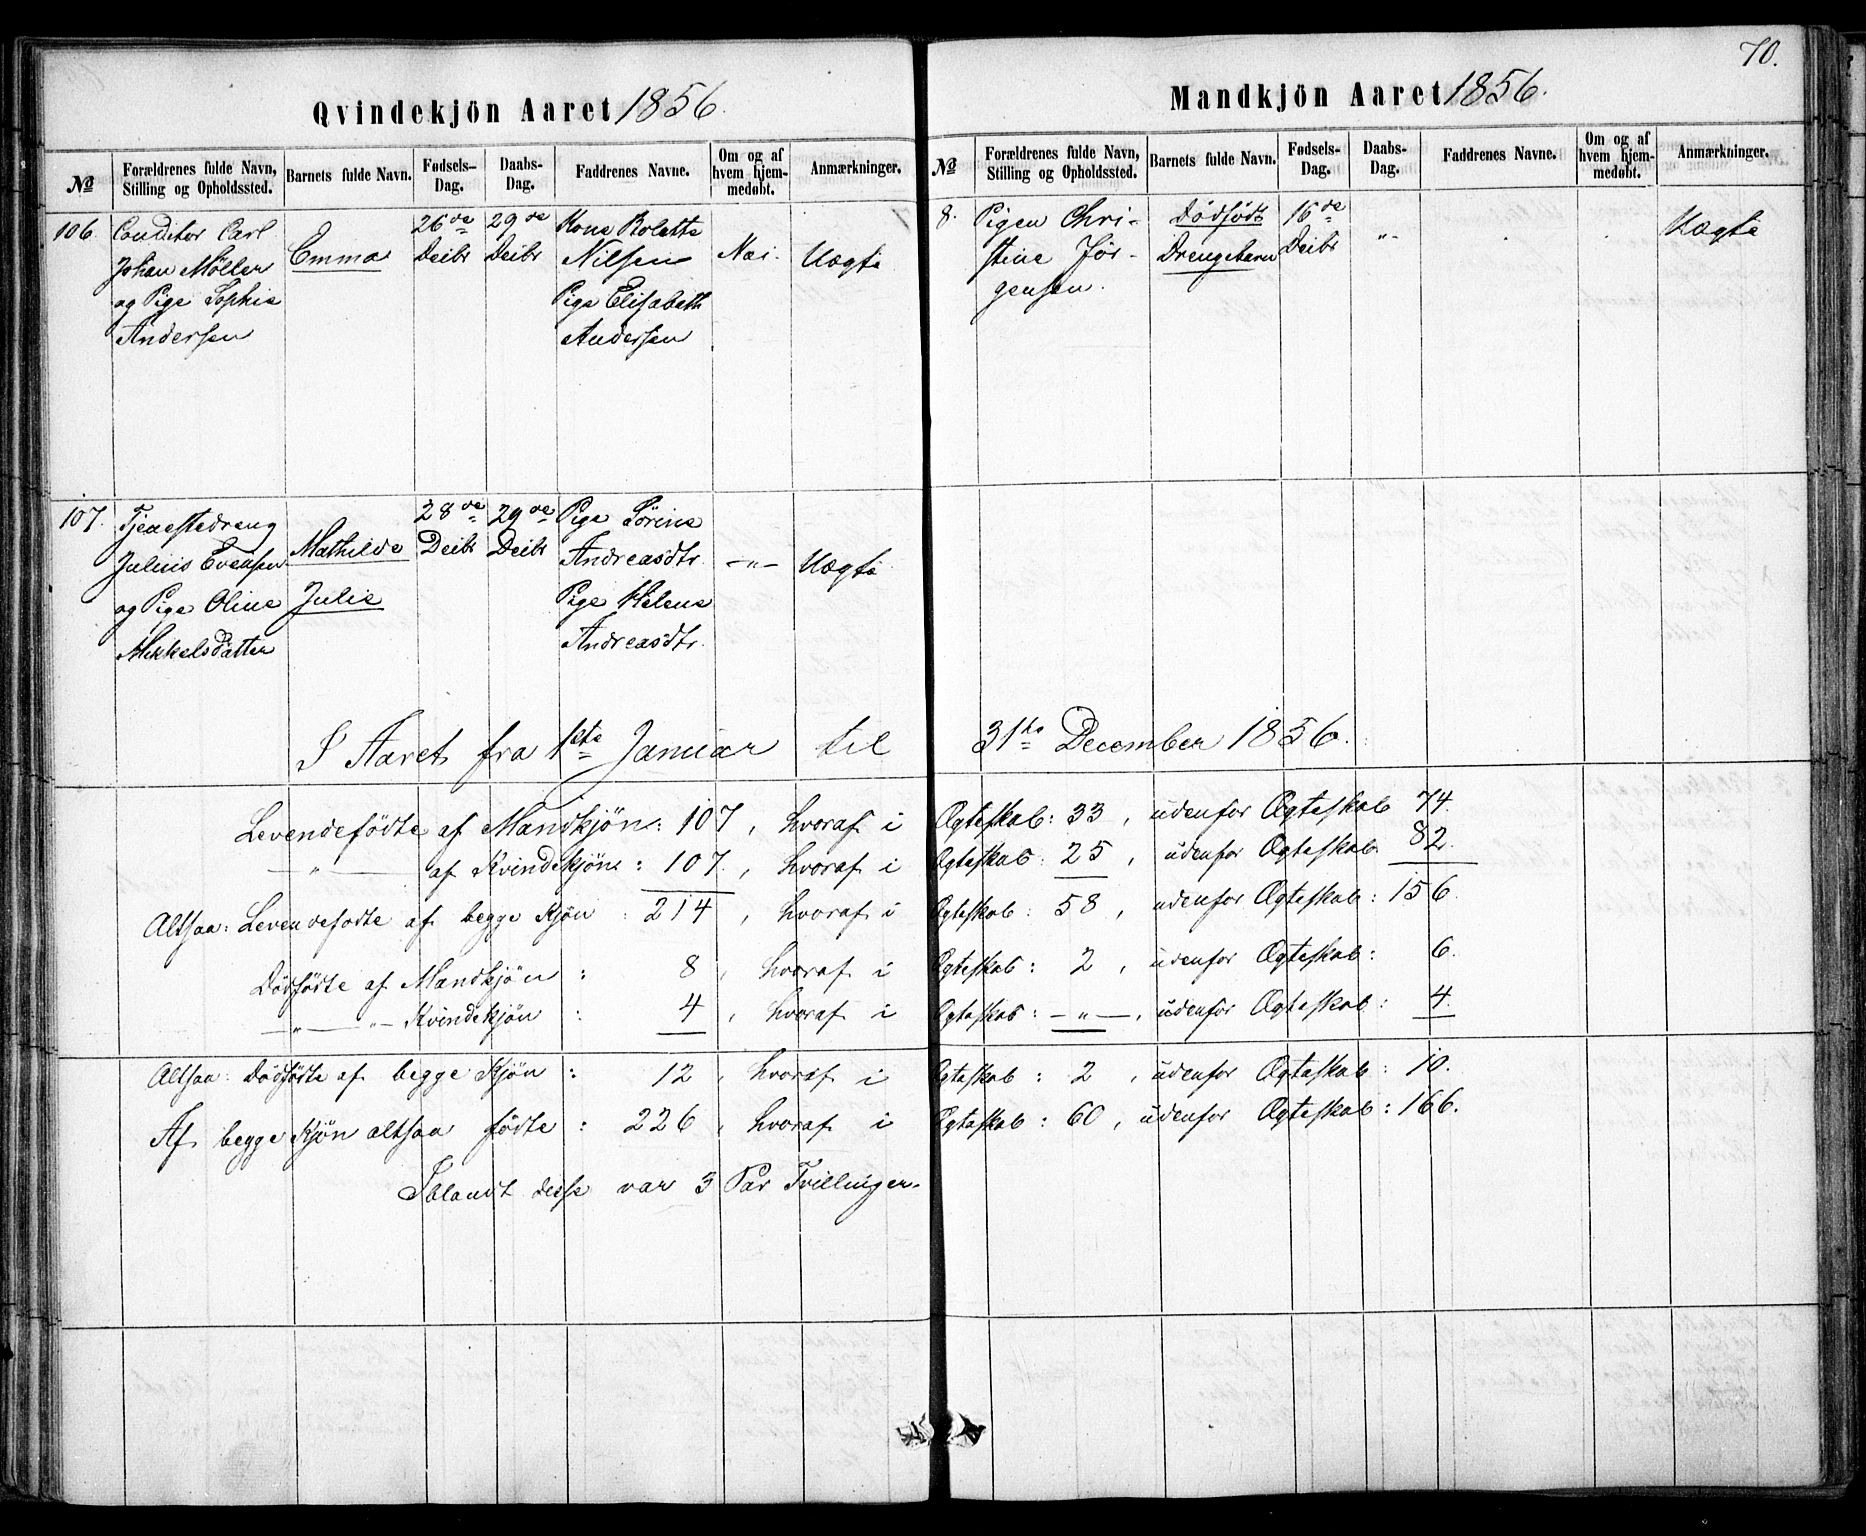 70.
Qvindekjön Aaret 1856.
№ Forældrenes fulde Navn, Stilling og Opholdssted. Barnets fulde Navn. Fødsels-Dag. Daabs-Dag. Faddrenes Navne. Om og af hvem hjem-medøbt. Anmærkninger.
106. Conditor Carl
Johan Möller
og Pige Sophie
Andersen
Emma
26de
Decbr
29de
Decbr
Kone Bolette
Nilsen
Pige Elisabeth
Andersen
Nei.
Uægte
107. Tjenestedreng
Julius Evensen
og Pige Oline
Mikkelsdatter
Mathilde
Julie
28de
Decbr
29de
Decbr
Pige Sörine
Andreasdtr.
Pige Helene
Andreasdtr.
—"—
Uægte
Mandkjön Aaret 1856.
№ Forældrenes fulde Navn, Stilling og Opholdssted. Barnets fulde Navn. Fødsels-Dag. Daabs-Dag. Faddrenes Navne. Om og af hvem hjem-medøbt. Anmærkninger.
8. Pigen Chri-
stine Jör-
gensen.
Dödfödt
Drengebarn
16de
Decbr
"-
Uægte
I Aaret fra 1ste Januar til 31te December 1856.
Levendefödte af Mandkjön: 107, hvoraf i Ægteskab: 33, udenfor Ægteskab 74.
—"— af Kvindekjön: 107, hvoraf i Ægteskab: 25, udenfor Ægteskab 82.
Altsaa: Levendefödte af begge Kjön: 214, hvoraf i Ægteskab: 58, udenfor Ægteskab: 156.
Dödfödte af Mandkjön: 8, hvoraf i Ægteskab: 2, udenfor Ægteskab: 6.
—"— "— Kvindekjön: 4, hvoraf i Ægteskab: —"—, udenfor Ægteskab: 4.
Altsaa: Dödfödte af begge Kjön: 12, hvoraf i Ægteskab: 2, udenfor Ægteskab: 10.
Af begge Kjön altsaa födte: 226, hvoraf i Ægteskab: 60, udenfor Ægteskab: 166.
Iblandt disse var 3 Par Tvillinger.